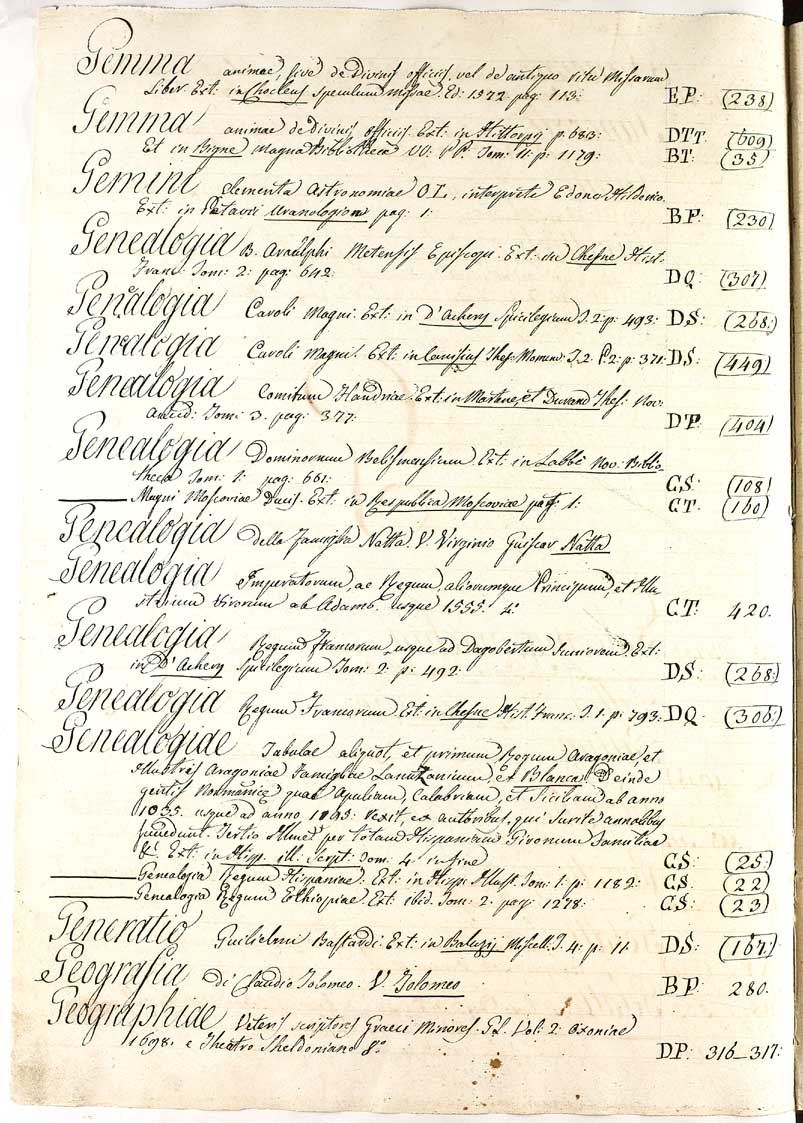 Gemma animae, sive de Divinis officiis, vel de antiquo ritu Missarum
Liber. Ext: in Chocleus Speculum Missae. Ed: 1572. pag: 113: EP: (238)
Gemma animae de Divinis officiis. Ext: in Hittorpg p. 683: DTT. (609)
Et in Bigne Magna Bibliotheca VV: PP: Tom: 11: p: 1179: BT: (35)
Gemini Elementa Astronomiae O.L, interprete Edono Hilderico.
Ext: in Petavii Uranologion pag: 1: BP: (230)
Genealogia B. Arnulphi Metensis Episcopi. Ext: in Chesne Hist.
Franc: Tom: 2: pag: 642: DQ: (307)
Genealogia Caroli Magni. Ext: in D'Achery Spicilegium T. 2: p: 493: DS: (268:)
Genealogia Caroli Magni. Ext: in Canisius Thes: Monum: T. 2. P. 2: p: 371: DS: (449)
Genealogia Comitum Flandriae. Ext: in Martene, et Durand Thes: Nov:
Anecd: Tom: 3. pag: 377: DP: (404)
Genealogia Dominorum Belismensium. Ext: in Labbè Nov: Biblio
theca Tom: 1: pag: 661: CS: (108)
Magni Moscoviae Ducis. Ext: in Respublica Moscoviae pag: 1: CT: (160)
Genealogia della Famiglia Natta. V. Virginio Guiscar Natta
Genealogia Imperatorum, ac Regum, aliorumque Principum, et Illu
strium Virorum ab Adamo usque 1555. 4º CT: 420.
Genealogia Regum Francorum, usque ad Dagobertum Juniorem. Ext:
in D'Achery Spicilegium Tom: 2: p: 492: DS: (268:)
Genealogia Regum Francorum Ext: in Chesne Hist. Franc: T. 1: p: 793: DQ: (306:)
Genealogiae Tabulae aliquot, et primum Regum Aragoniae, et
Illustris Aragoniae Famigliae Lanuzanium, et Blanca. Deinde
gentis Normanicae quae Apuliam, Calabriam, et Siciliam ab anno
1035. usque ad anno 1195: rexit, ex autoribus, qui
. Tertio per totam Hispaniam Gironum Familiae
&c. Ext: in Hisp: ill: Script: Tom: 4: in fine CS: (25:)
Genealogia Regum Hispaniae: Ext: in Hisp: Illust. Tom: 1: p: 1182: CS: (22)
Genealogia Regum Ethiopiae Ext: ibid. Tom: 2: pag: 1278: CS: (23)
Generatio Guilielmi Bastardi. Ext: in Baluzij Miscell: T. 4: p: 11: DS: (167:)
Geografia di Claudio Tolomeo. V. Tolomeo BP: 280.
Geographiae Veteris scriptores Graeci Minores. Vol: 2: Oxoniae
1698. e Theatro Sheldoniano 8º DP: 316_317: